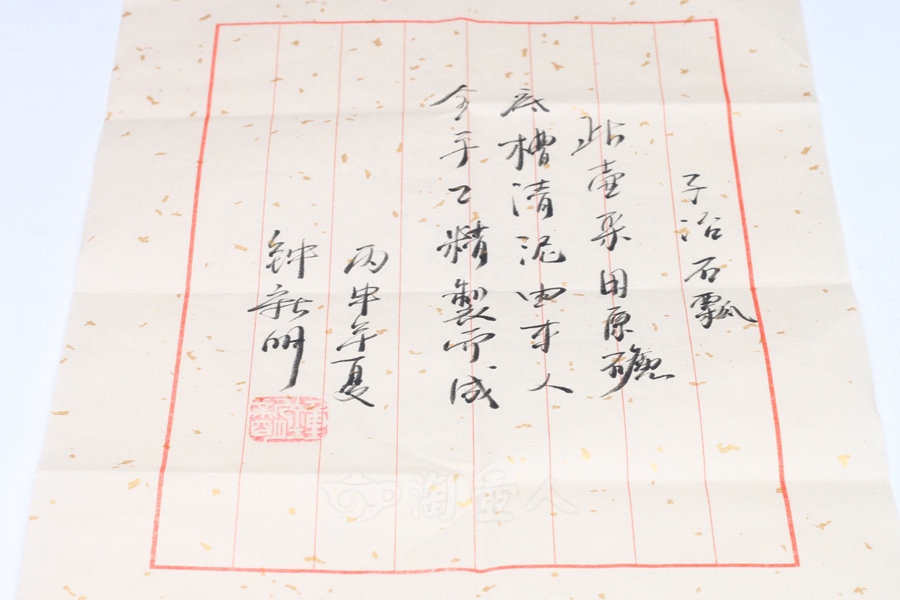 子冶石瓢
此壺采用原礦
底槽清泥由本人
全手工精製而成
丙申年夏
钟新明
淘壺人